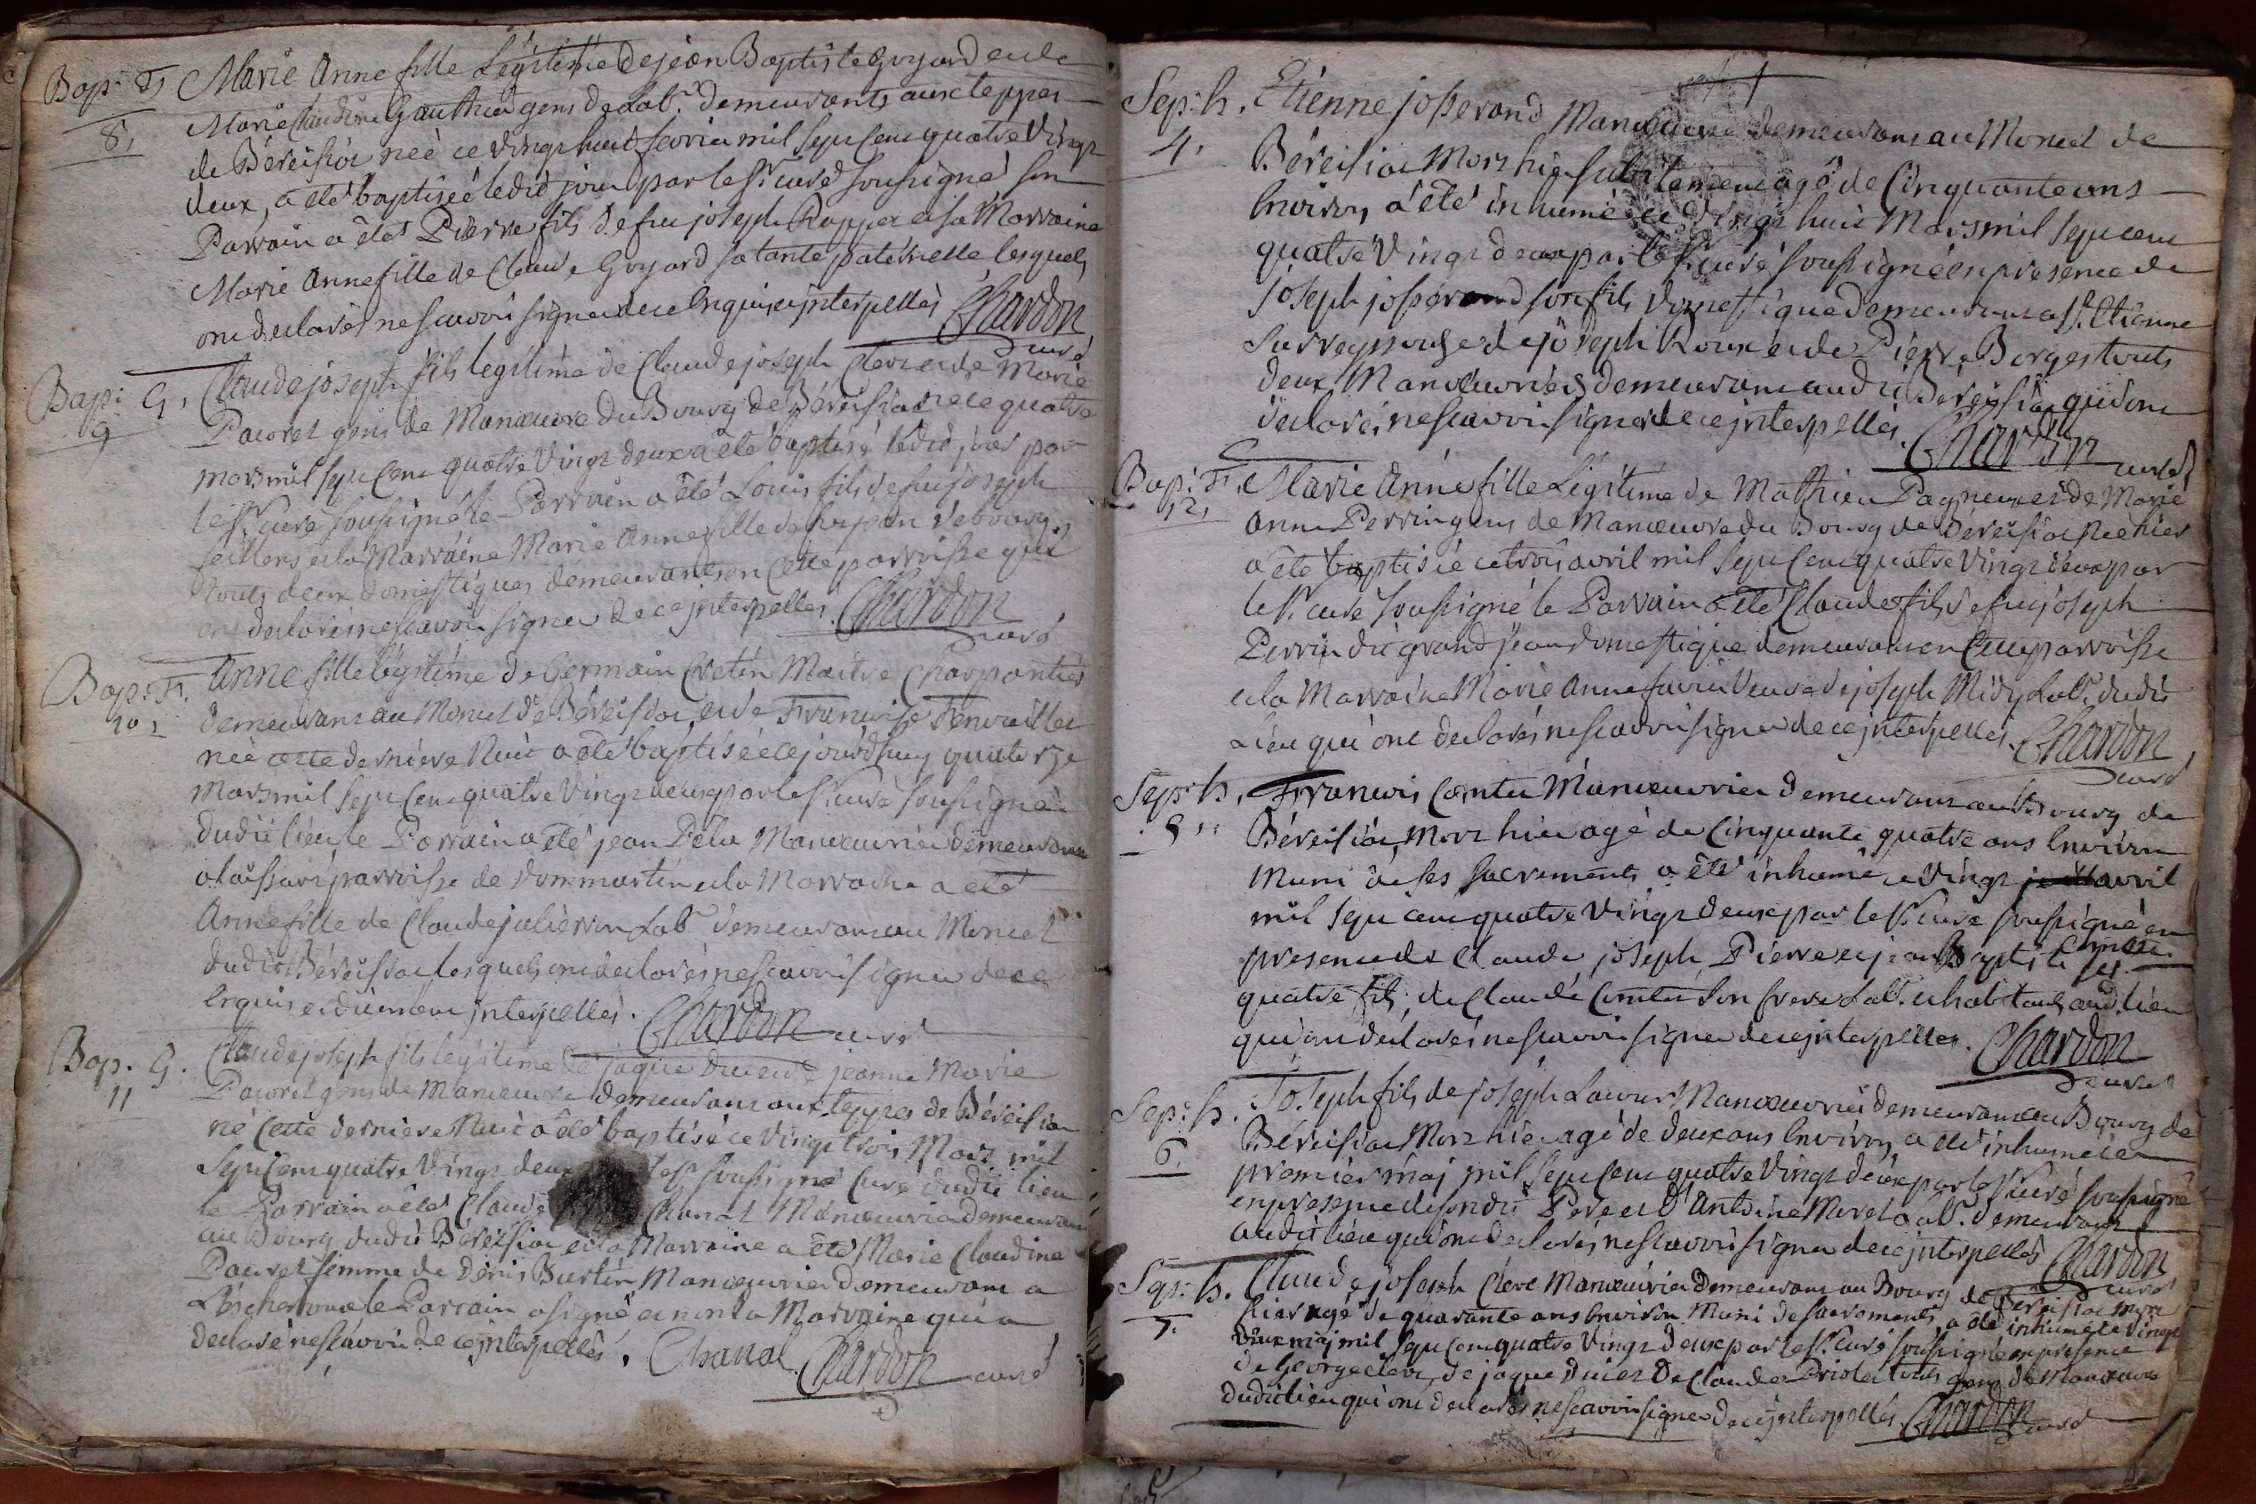 Bap: F, Marie Anne fille Légitime de jean Baptiste Goyard et de
8, Marie Claudine Gauthier gens de Lab.r demeurants aux teppes
de Béreisiat neé ce vingt huit fevrier mil sept cent quatre vingt
deux, a été baptisée ledit jour par le S.r curé soussigné son
Parrain a été Pierre fils de feu joseph et sa Marraine
Marie Anne fille de Claude Goyard sa tante paternelle lesquels
ont declarés ne scavoir signer de ce Enquis et interpellés Chardon
curé
Bap: G, Claude joseph fils legitime de Claude joseph Clerc et de Marie
9 Pauvret gens de Manœuvre du Bourg de Béreisiat né ce quatre
mars mil sept cent quatre vingt deux a été baptisé ledit jour par
le S.r curé soussigné le Parrain a été Louis fils de feu joseph
et la Marraine Marie Anne fille de feu jean
touts deux domestiques demeurant en cette parroisse qui
ont declarés ne scavoir signer de ce interpelles. Chardon
curé
Bap: F. Anne fille légitime de Germain Cretin Maitre Charpantier
10, demeurant au Moncel de Béreisiat, et de Francoise
née cette derniere Nuit a été baptisée cejourd'huy quatorze
Mars mil sept cent quatre vingt deux par le S.r curé soussigné
dudit lieu le Parrain a été jean Manœuvrier demeurant
parroisse de dommartin et la Marraine a été
Anne fille de Claude Lab.r demeurant au Moncel
dudit Béreissiat lesquels ont declarés ne scavoir signer de ce
Enquis et duement interpellés. Chardon curé
Bap. G. Claude joseph fils légitime de jaque et de jeanne Marie
11 Pauvret gens de Manœuvre demeurant aux teppes de Béreisiat
né cette derniere Nuit a été baptisé ce vingt trois Mars mil
sept cent quatre vingt deux soussigné Curé dudit lieu
le Parrain a été Claude Chanal Manœuvrier demeurant
au Bourg dudit Béréisiat et la Marraine a été Marie Claudine
Pauvret femme de Denis Burtin Manœuvrier demeurant a
le Parrain a signé et non la Marraine qui a
declaré ne scavoir de ce interpellés. Chanal Chardon curé
Sep: h. Etienne josserand Manœuvre demeurant au Moncel de
4, Béreisiat Mort hier subitement agé de Cinquante ans
Environ, a été inhumé ce vingt huit Mars mil sept cent
quatre vingt deux par le S.r curé soussigné en presence de
joseph josserand son fils domestique demeurant a S.t Etienne
sur reyssouse de joseph Roux et de Pierre Borges touts
deux Manœuvriers demeurant audit Béreisiat qui ont
declarés ne scavoir signer de ce interpellés. Chardon
curé
Bap: F, Marie Anne fille Légitime de Mathieu Pagneux et de Marie
12, Anne Perrin gens de Manœuvre du Bourg de Béreisiat Née hier
a été baptisée ce trois avril mil sept cent quatre vingt deux par
le S.r curé soussigné le Parrain a été Claude fils de feu joseph
Perrin dit grand jean domestique demeurant en cette parroisse
et la Marraine Marie Anne veuve de joseph Midy Lab.r dudit
Lieu qui ont declarés ne scavoir signer de ce interpellés. Chardon
curé
Sep: h, Francois Comtet Manœuvrier demeurant au Bourg de
5 Béreisiat Mort hier agé de Cinquante quatre ans Environ
Muni de ses sacrements a été inhumé ce vingt avril
mil sept cent quatre vingt deux par le S.r curé soussigné en
presence de Claude joseph Pierre et jean Baptiste
quatre fils de Claude Comtet son frere Lab.r et habitants aud. lieu
qui ont declarés ne scavoir signer de ce interpellés. Chardon
curé
Sep: h. Joseph fils de joseph Manœuvrier demeurant au Bourg de
6 Béreisiat Mort hier agé de deux ans Environ a été inhumé ce
premier maj mil sept cent quatre vingt deux par le S.r curé soussigné
en presence de sondit Pere et d'Antoine Morel Lab.r demeurants
audit lieu qui ont declarés ne scavoir signer de ce interpellés Chardon
curé
Sep: h. Claude joseph Clerc Manœuvrier demeurant au Bourg de Bereisiat Mort
7. hier agé de quarante ans Environ Muni de sacrements a été inhumé ce vingt
deux maj mil sept cent quatre vingt deux par le S.r curé soussigné en presence
de George Clerc, de jaque et De Claude touts gens de Manœuvre
dudit lieu qui ont declarés ne scavoir signer de ce interpellés Chardon
curé